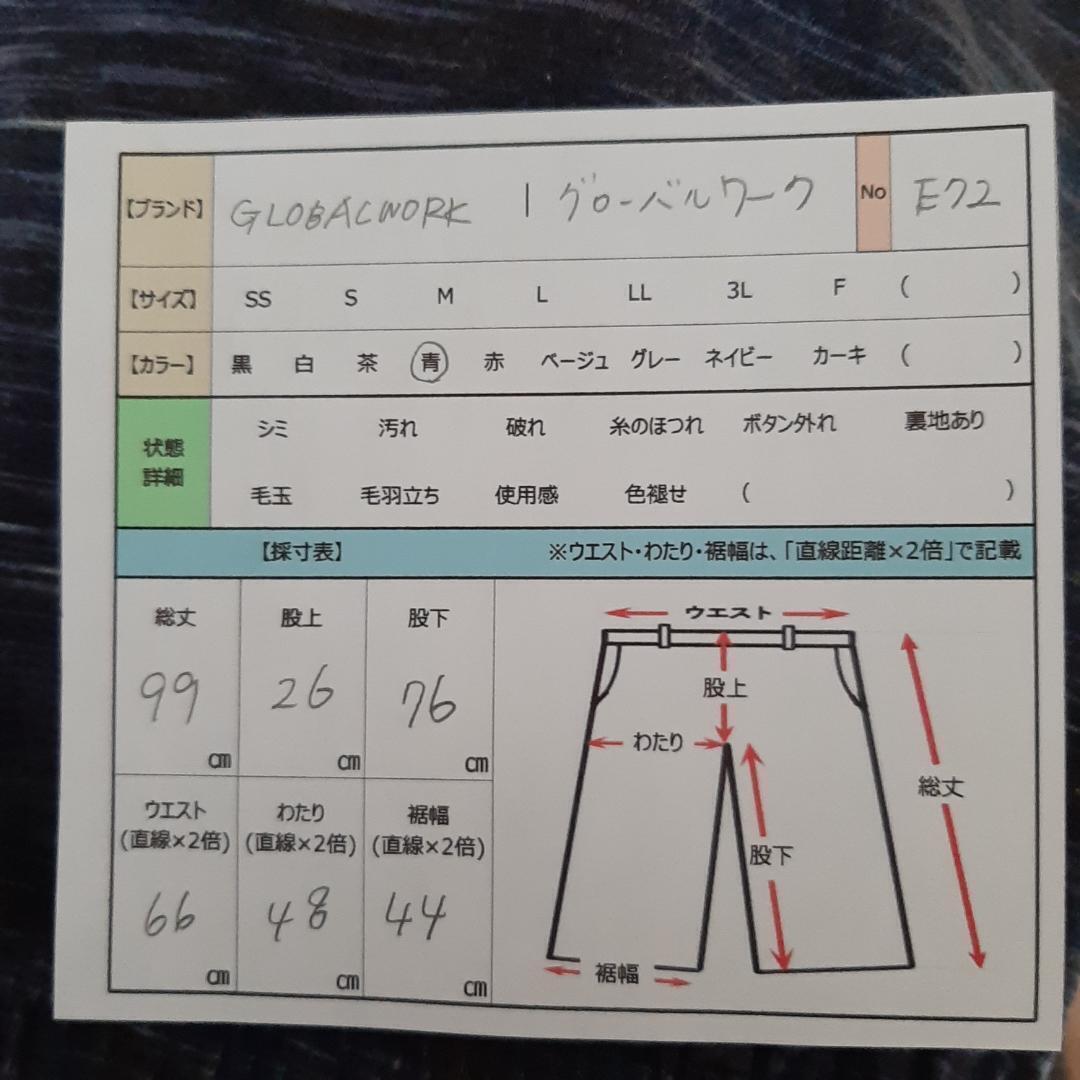 【ブランド】 GLOBALWORK | グローバルワーク No E72
【サイズ】 SS S M L LL 3L F ( )
【カラー】 黒 白 茶 青 赤 ベージュ グレー ネイビー カーキ ( )
状態
詳細
シミ 汚れ 破れ 糸のほつれ ボタン外れ 裏地あり
毛玉 毛羽立ち 使用感 色褪せ ( )
【採寸表】 ※ウエスト・わたり・裾幅は、「直線距離×2倍」で記載
総丈 股上 股下
99 26 76
cm cm cm
ウエスト わたり 裾幅
(直線×2倍) (直線×2倍) (直線×2倍)
66 48 44
cm cm cm
ウエスト
股上
わたり
総丈
股下
裾幅